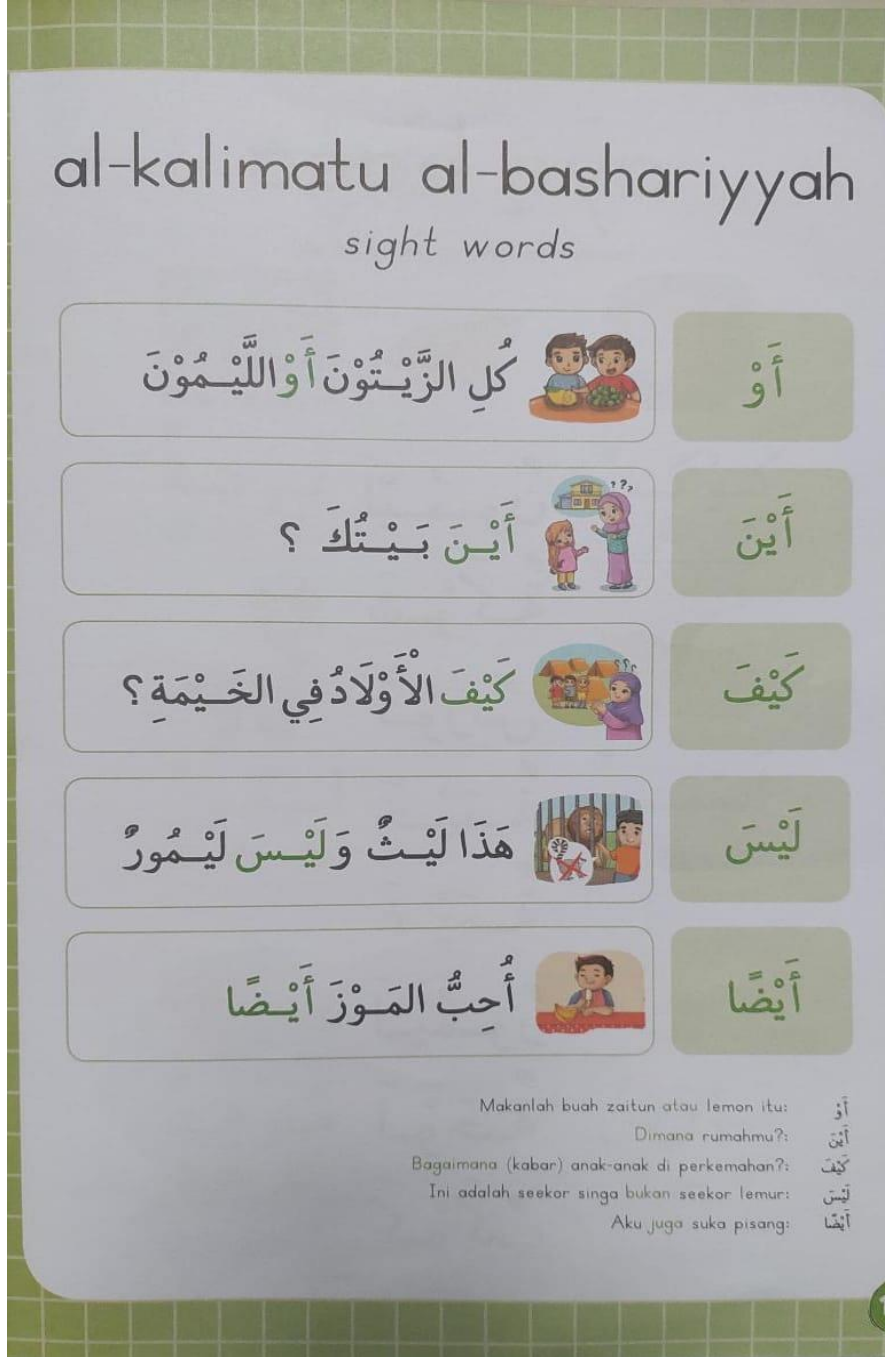 al-kalimatu al-bashariyyah
sight words
أَوْ
كُلِ الزَّيْتُوْنَ أَوْ اللَّيْمُوْنَ
أَيْنَ
أَيْنَ بَيْتُكَ ؟
كَيْفَ
كَيْفَ الْأَوْلَادُ فِي الخَيْمَةِ ؟
لَيْسَ
هَذَا لَيْثٌ وَلَيْسَ لَيْمُورٌ
أَيْضًا
أُحِبُّ المَوْزَ أَيْضًا
أَوْ Makanlah buah zaitun atau lemon itu:
أَيْنَ Dimana rumahmu?:
كَيْفَ Bagaimana (kabar) anak-anak di perkemahan?:
لَيْسَ Ini adalah seekor singa bukan seekor lemur:
أَيْضًا Aku juga suka pisang: